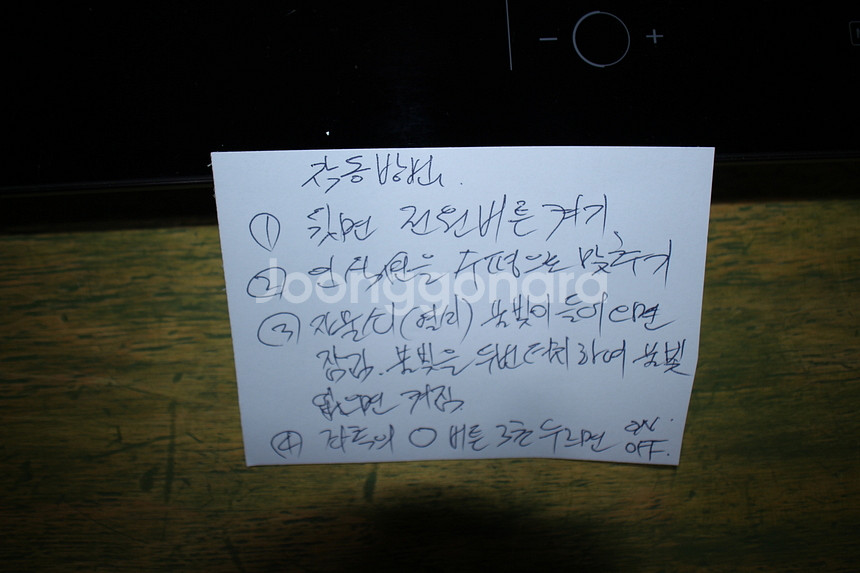 작동방법.
① 윗면 전원버튼 켜기,
② 인덕션을 수평으로 맞추기
③ 자물쇠(열쇠) 불빛이 들어오면
잠김. 불빛을 두번 터치하여 불빛
없으면 켜짐
④ 좌측의 ○ 버튼 3초 누르면 ON. OFF.
joonggonara
− +